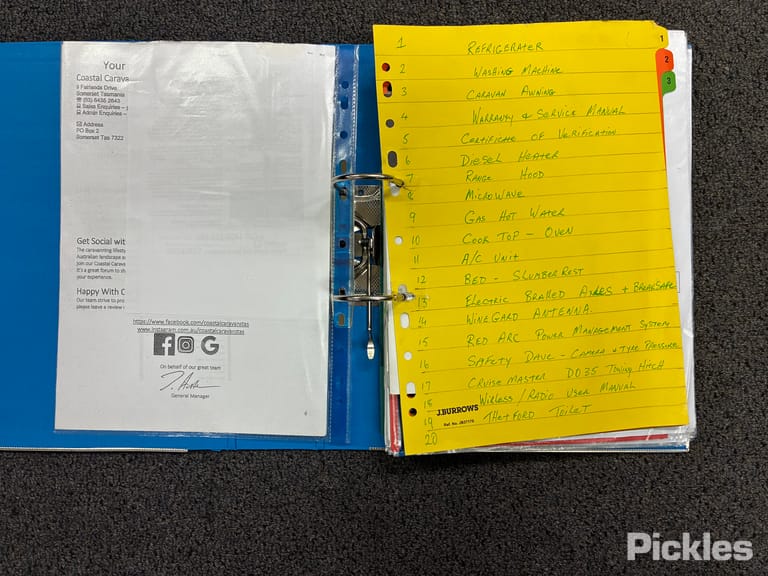 Your
Coastal Carava
9 Fairlands Drive
Somerset Tasmania
☎ (03) 6435 2643
Sales Enquiries –
Admin Enquiries –
Address
PO Box 2
Somerset Tas 7322
Get Social wit
The caravanning lifesty
Australian landscape a
join our Coastal Carava
It's a great forum to sh
your experience.
Happy With C
Our team strive to pro
please leave a review
https://www.facebook.com/coastalcaravanstas
www.instagram.com.au/coastalcaravanstas
On behalf of our great team
General Manager
6
1 REFRIGERATER
2 WASHING MACHINE
3 CARAVAN AWNING
4 WARRANTY & SERVICE MANUAL
5 CERTIFICATE OF VERIFICATION
6 DIESEL HEATER
7 RANGE HOOD
8 MICROWAVE
9 GAS HOT WATER
10 COOK TOP - OVEN
11 A/C UNIT
12 BED - SLUMBERREST
13 ELECTRIC BRAKED AXLES + BREAKSAFE
14 WINEGARD ANTENNA
15 RED ARC POWER MANAGEMENT SYSTEM
16 SAFETY DAVE - CAMERA & TYRE PRESSURE
17 CRUISEMASTER DO35 TOWING HITCH
18 WIRLESS / RADIO USER MANUAL
19 THETFORD TOILET
20
J.BURROWS
1
2
3
Pickles